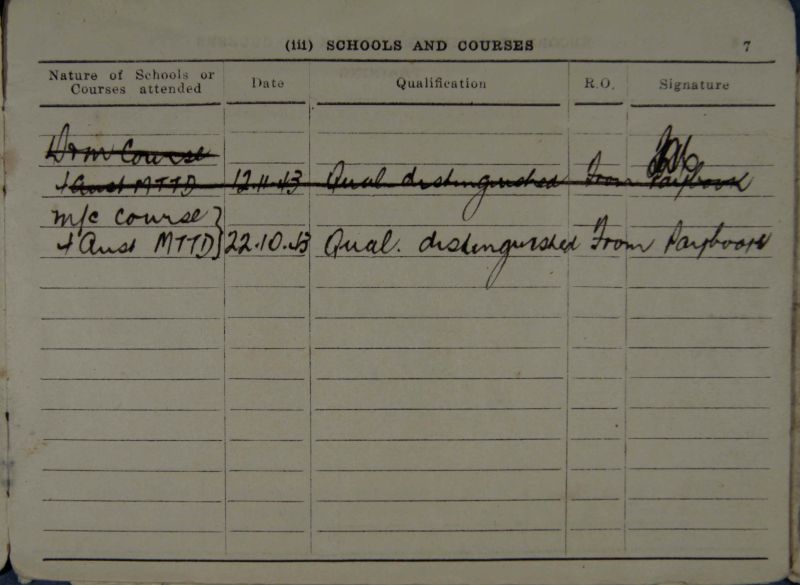 (iii) SCHOOLS AND COURSES 7
Nature of Schools or Courses attended Date Qualification R.O. Signature
Course
+ Aust MTTD 12.11.43 Qual. distinguished From Paybook
M/c Course }
+ Aust MTTD } 22.10.43 Qual. distinguished From Paybook